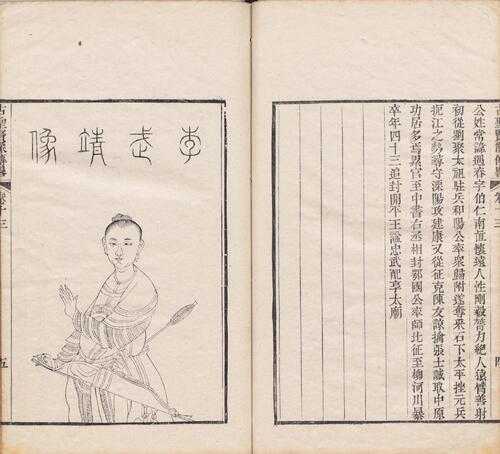 公姓常諱遇春字伯仁南直懷遠人性剛毅膂力絕人猿臂善射
初從劉聚太祖駐兵和陽公率衆歸附遂奪采石下太平挫元兵
扼江之勢尋守溧陽攻建康又從征克陳友諒擒張士誠取中原
功居多焉累官至中書右丞相封鄂國公率師北征至柳河川暴
卒年四十三追封開平王諡忠武配享太廟
李武靖像
卷十三
五